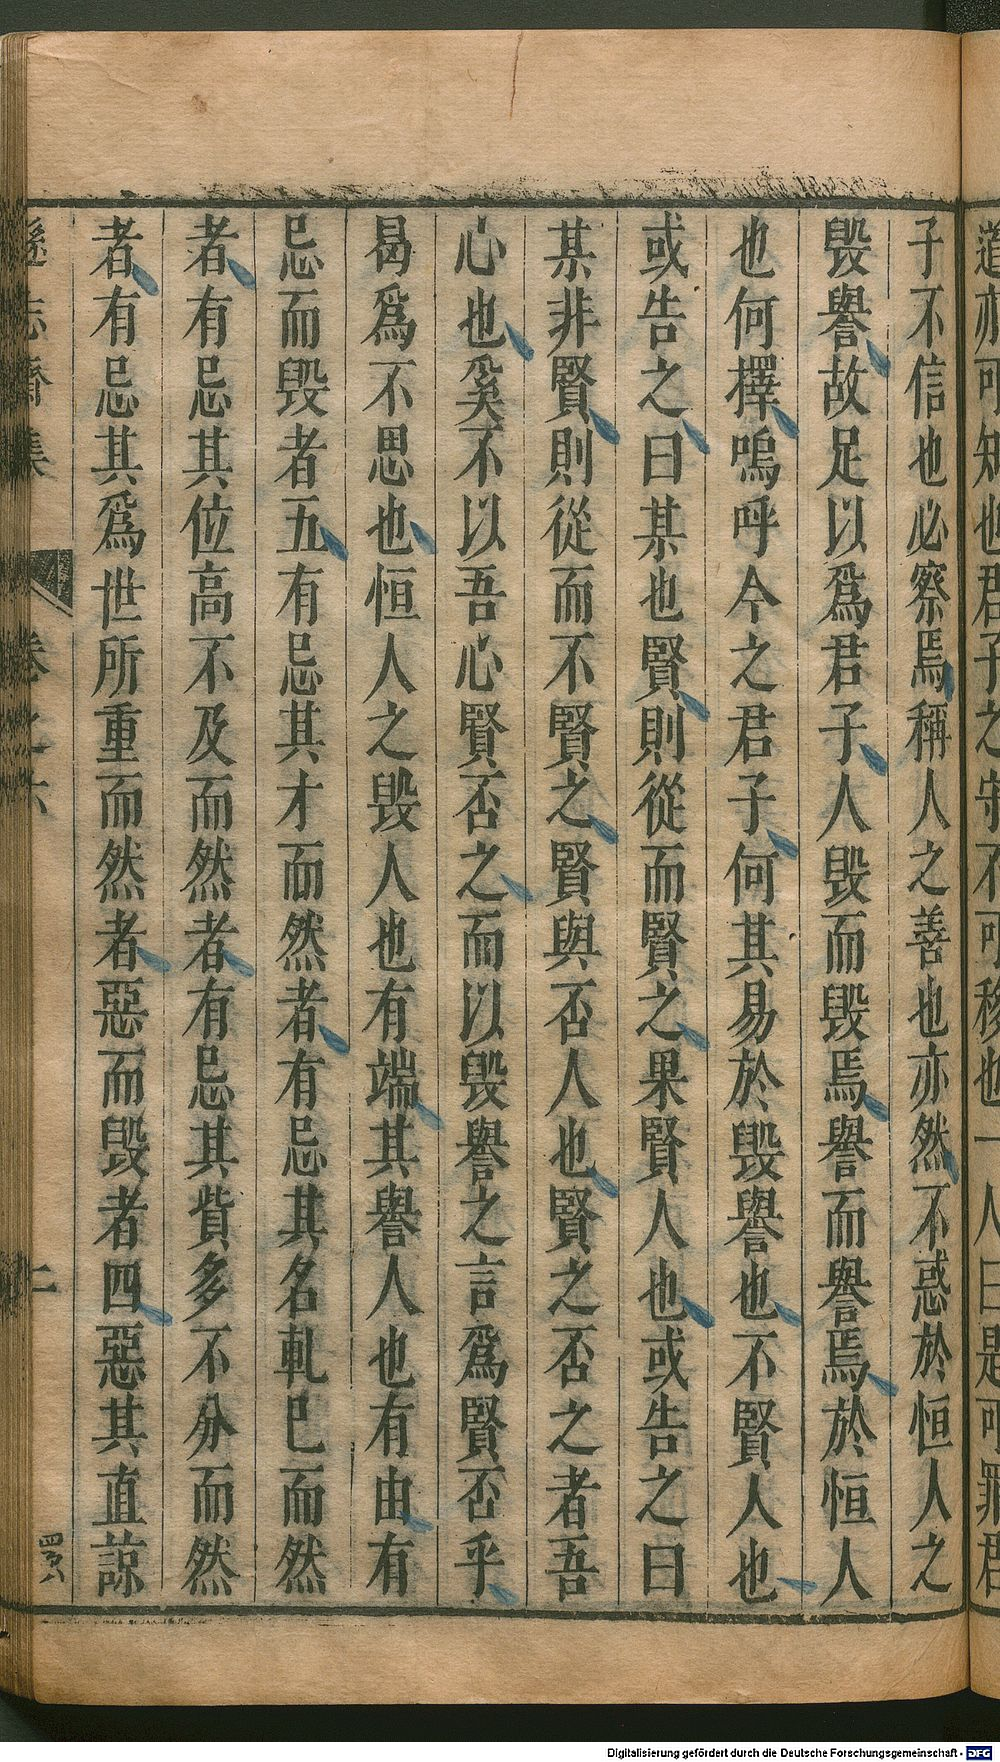 道亦可知也君子之守不可移也一人曰是可罪君
子不信也必察焉稱人之善也亦然不惑於恒人之
毀譽故足以爲君子人毀而毀焉譽而譽焉於恒人
也何擇嗚呼今之君子何其易於毀譽也不賢人也
或告之曰某也賢則從而賢之果賢人也或告之曰
某非賢則從而不賢之賢與否人也賢之否之者吾
心也奚不以吾心賢否之而以毀譽之言爲賢否乎
曷爲不思也恒人之毀人也有端其譽人也有由有
忌而毀者五有忌其才而然者有忌其名軋已而然
者有忌其位高不及而然者有忌其貲多不分而然
者有忌其爲世所重而然者惡而毀者四惡其直諒
遜志齋集 卷之六
Digitalisierung gefördert durch die Deutsche Forschungsgemeinschaft - DFG